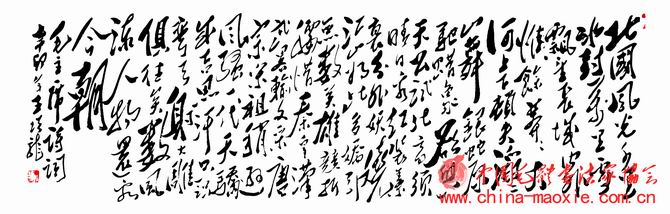 北國風光千里
冰封萬里雪
飄望長城內外
惟餘莽莽大
河上下頓失滔滔
山舞銀蛇原
馳蠟象欲與
天公試比高須
晴日看紅裝素
裹分外妖嬈
江山如此多嬌引
無數英雄競折
腰惜秦皇漢
武略輸文采唐
宗宋祖稍遜
風騷一代天驕
成吉思汗只識
彎弓射大雕
俱往矣數風
流人物還看
今朝
毛主席詩詞
辛卯年
中国毛体书法家协会
www.china-maoxie.com.cn